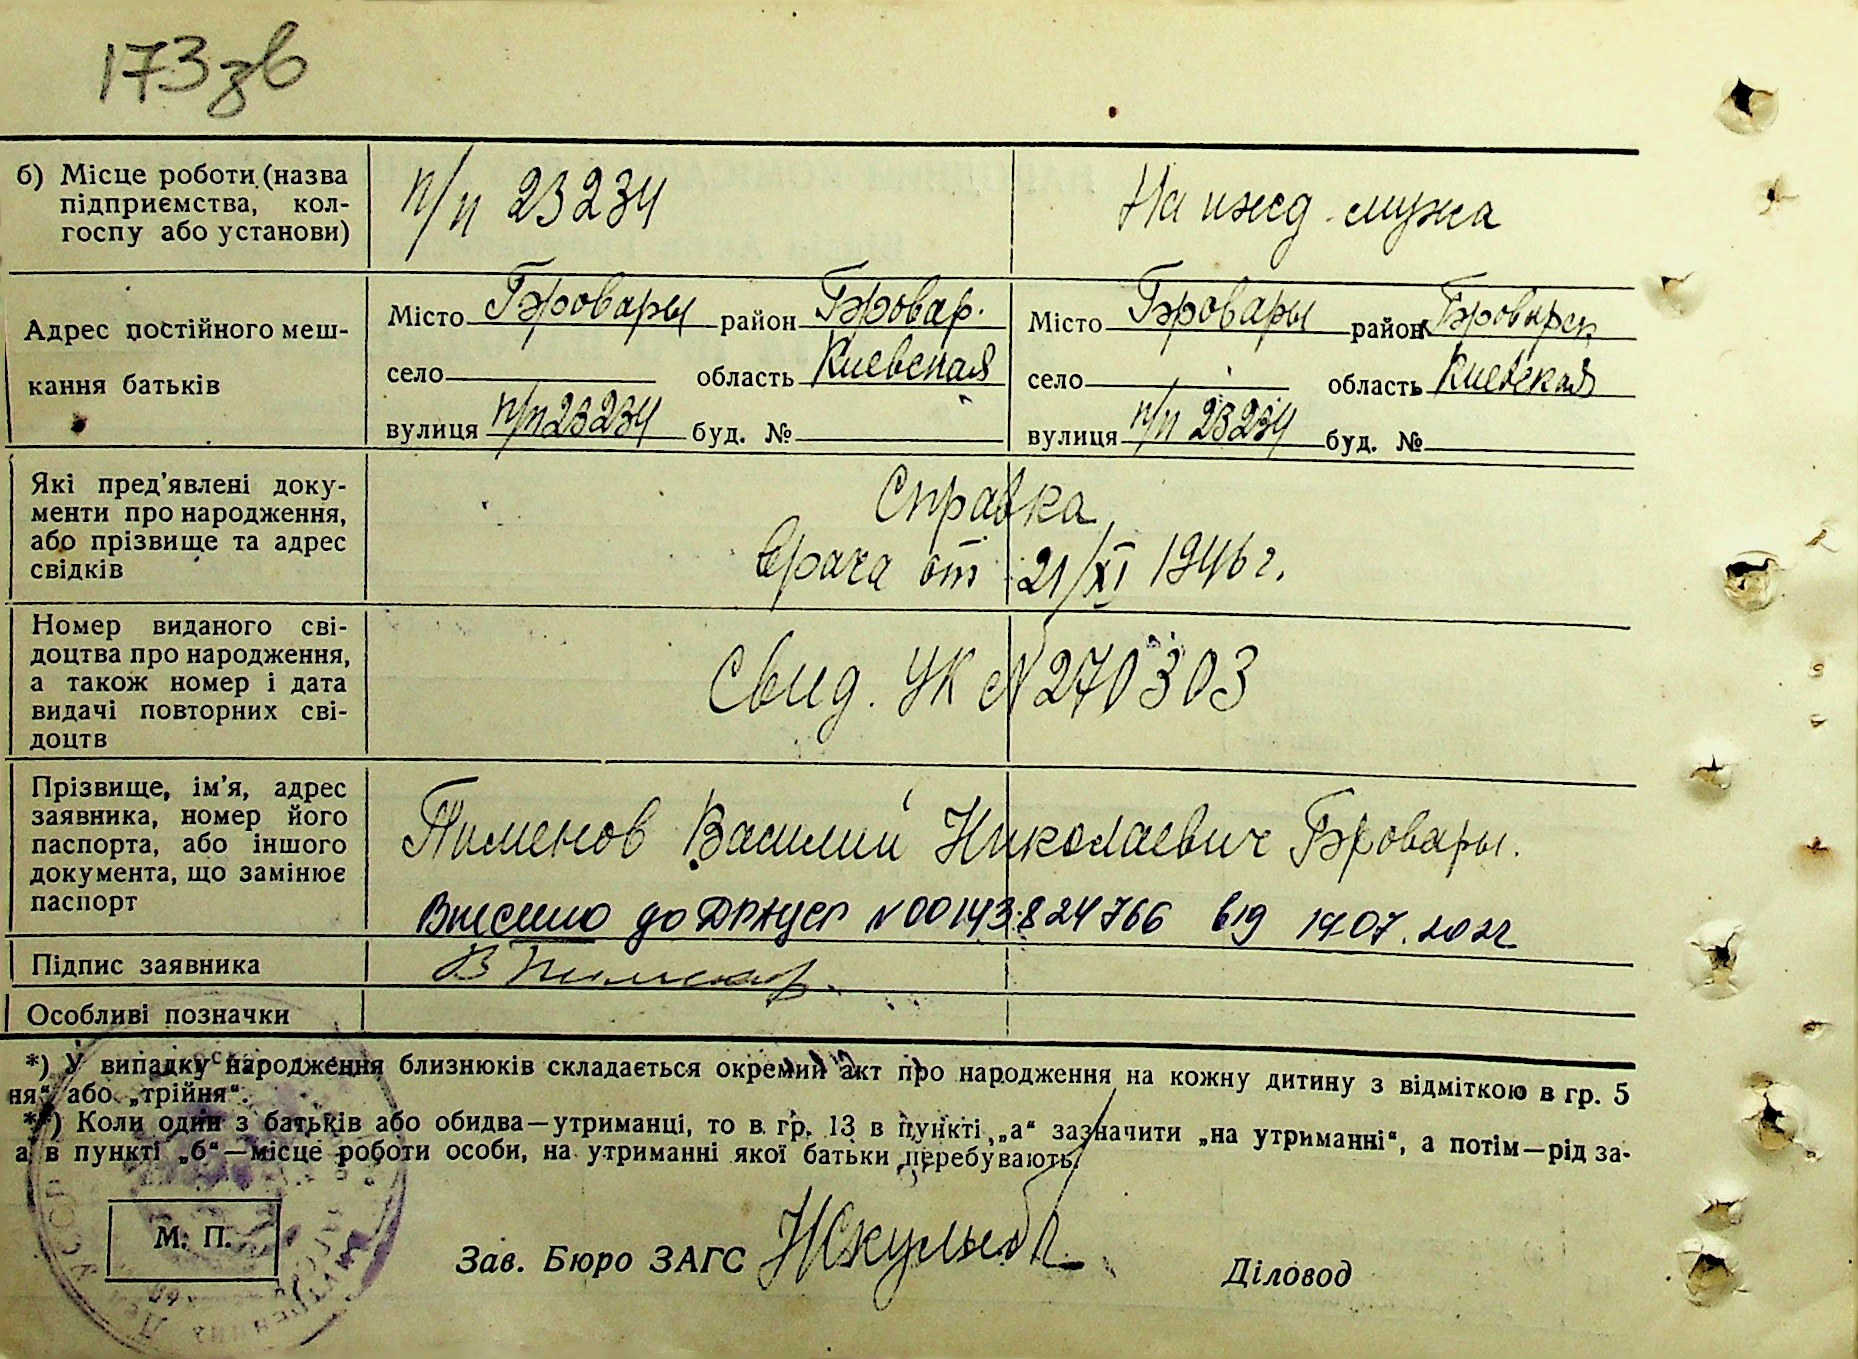 173зв
б) Місце роботи (назва
підприємства, кол-
госпу або установи)
п/п 23234
На ижд. мужа
Адрес постійного меш-
кання батьків
Місто Бровары район Бровар.
село область Киевская
вулиця п/п 23234 буд. №
Місто Бровары район Броварск
село область Киевская
вулиця п/п 23234 буд. №
Які пред'явлені доку-
менти про народження,
або прізвище та адрес
свідків
Справка
врача от 21/XI 1946 г.
Номер виданого сві-
доцтва про народження,
а також номер і дата
видачі повторних сві-
доцтв
Свид. УК № 270303
Прізвище, ім'я, адрес
заявника, номер його
паспорта, або іншого
документа, що замінює
паспорт
Пименов Василий Николаевич Бровары.
Внесено до ДРАЦСГ № 00143824766 від 19.07.2022
Підпис заявника
В Пименов
Особливі позначки
*) У випадку народження близнюків складається окремий акт про народження на кожну дитину з відміткою в гр. 5
ня“ або „трійня“.
**) Коли один з батьків або обидва—утриманці, то в гр. 13 в пункті „а“ зазначити „на утриманні“, а потім—рід за-
а в пункті „б“—місце роботи особи, на утриманні якої батьки перебувають.
М. П.
Зав. Бюро ЗАГС
Діловод